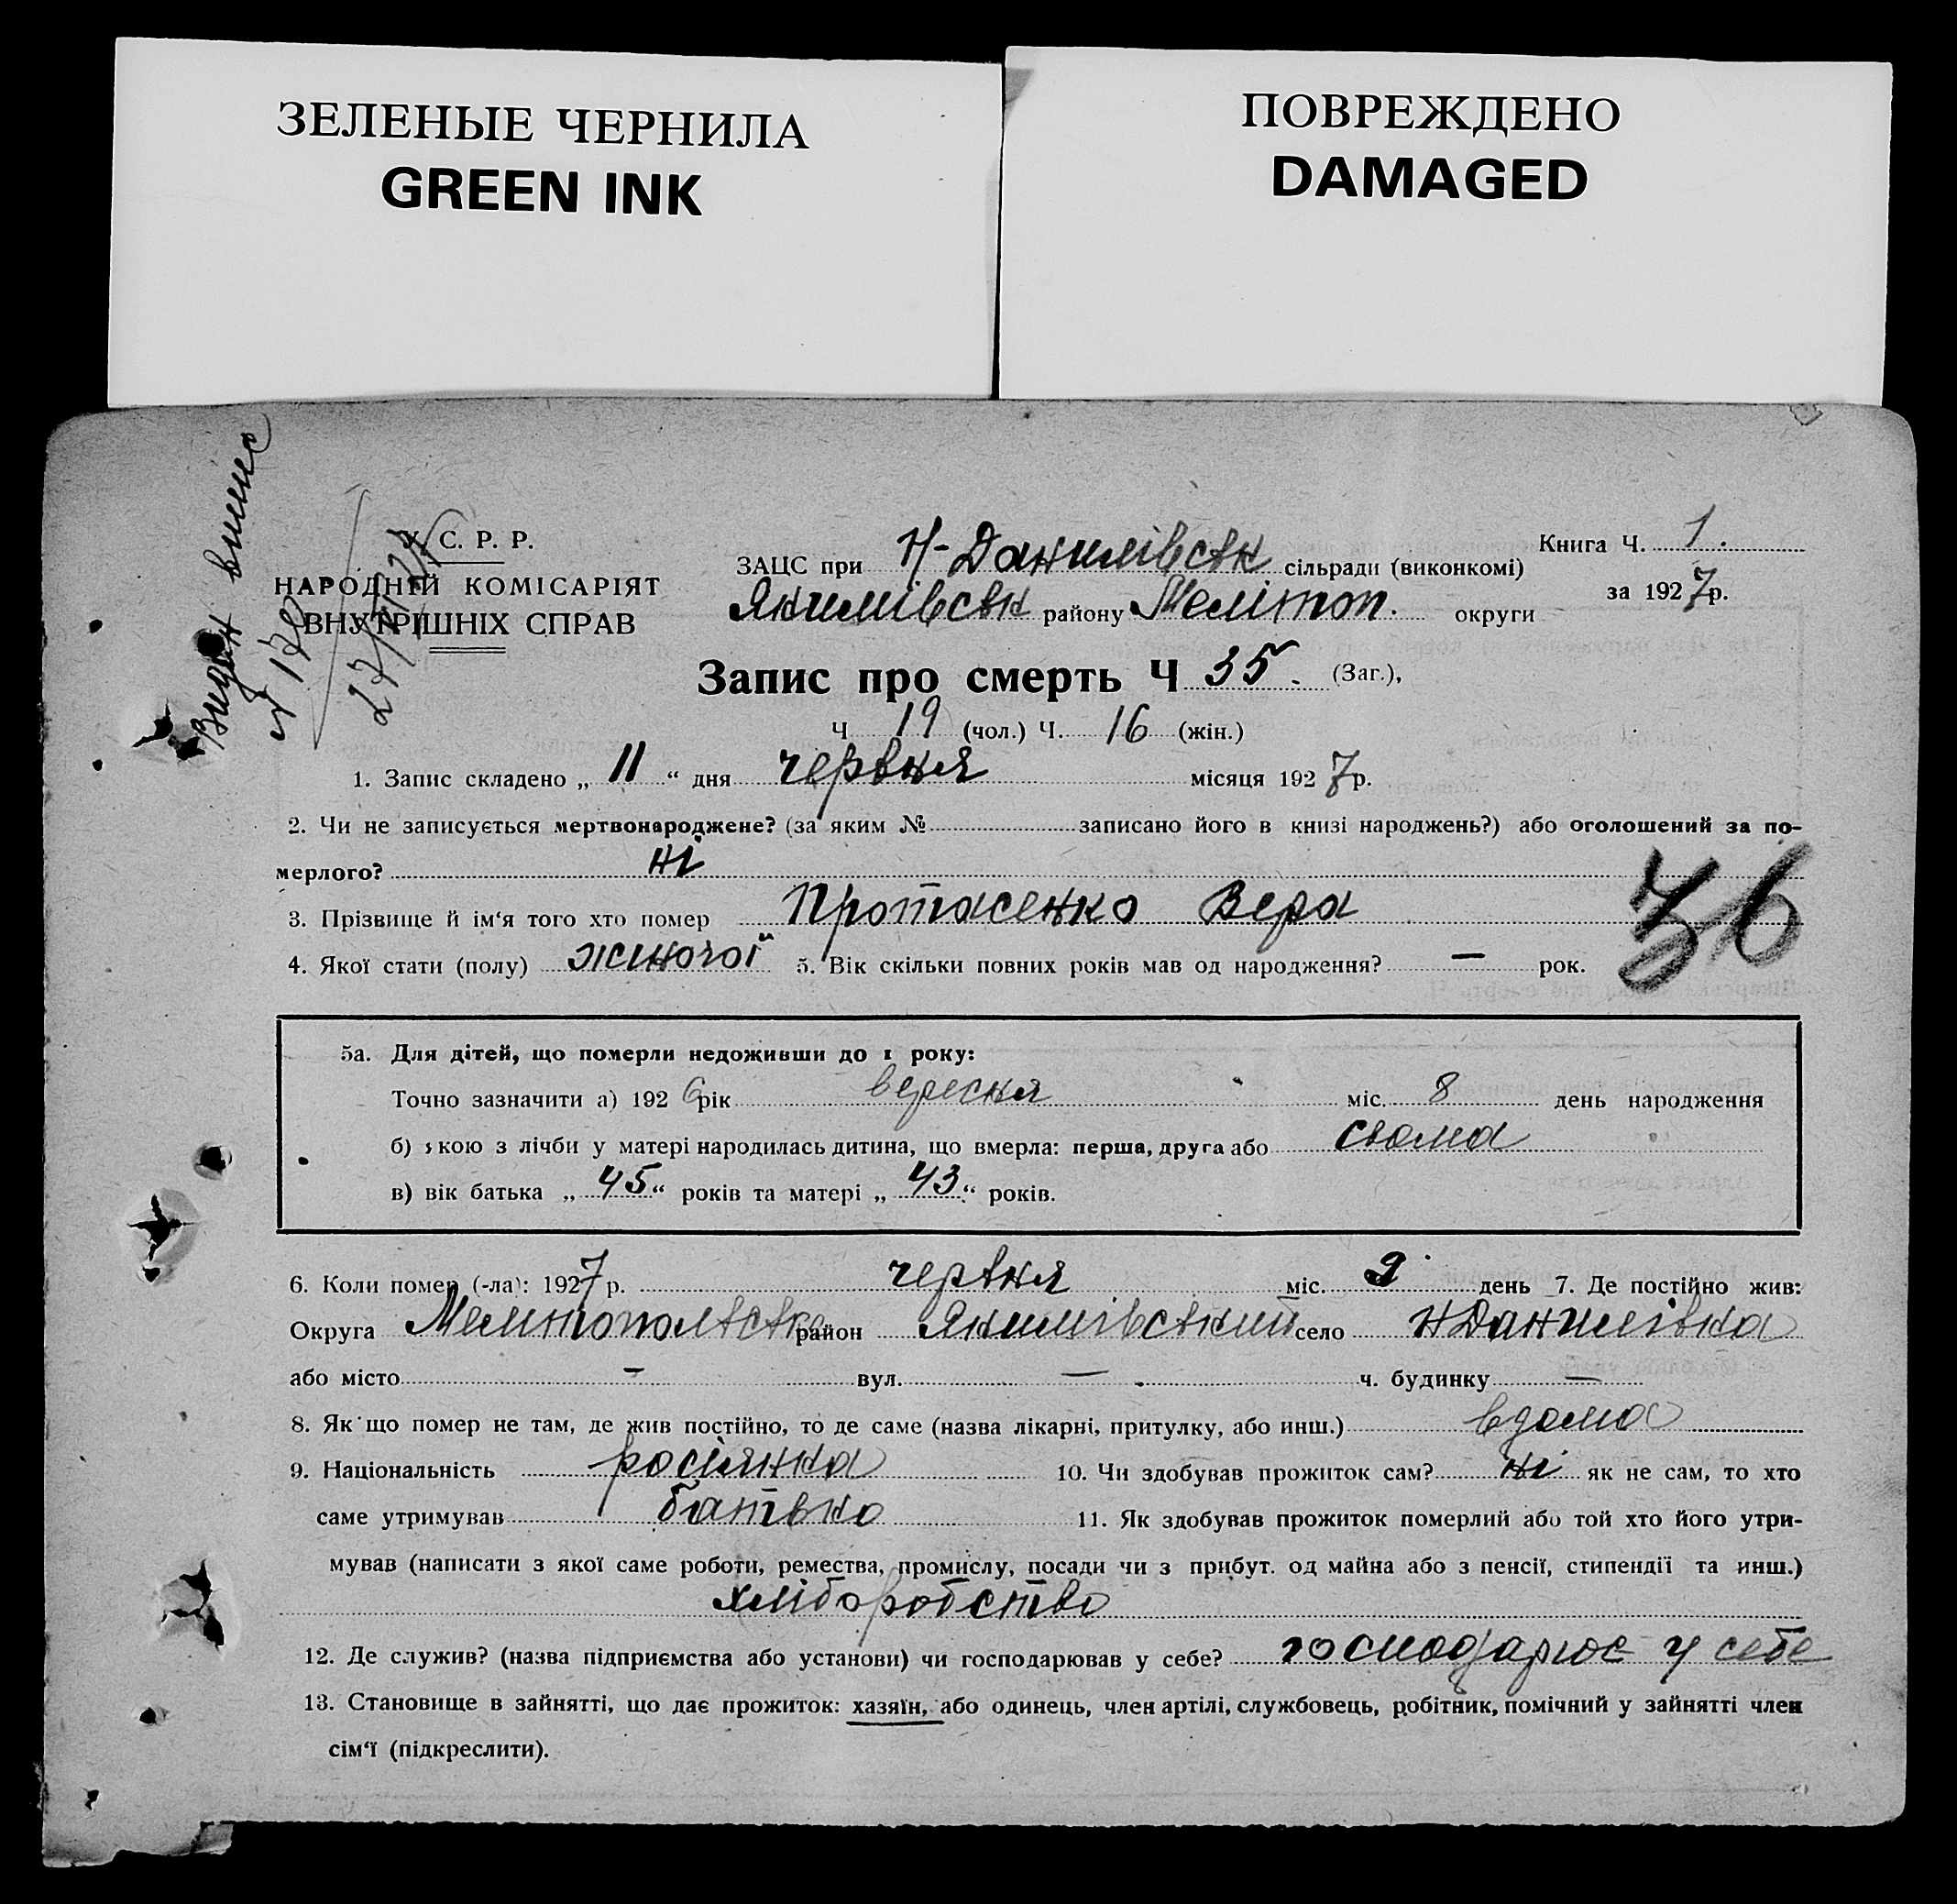 ЗЕЛЕНЫЕ ЧЕРНИЛА
GREEN INK
ПОВРЕЖДЕНО
DAMAGED
Видан
У. С. Р. Р.
НАРОДНІЙ КОМІСАРІЯТ
ВНУТРІШНІХ СПРАВ
ЗАЦС при Н-Данилівськ сільради (виконкомі)
Якимівськ району Мелітоп. округи
Книга Ч. 1.
за 1927 р.
Запис про смерть Ч 35. (Заг.),
Ч 19 (чол.) Ч. 16 (жін.)
1. Запис складено „ 11 “ дня червня місяця 1927 р.
2. Чи не записується мертвонароджене? (за яким № записано його в книзі народжень?) або оголошений за по-
мерлого? ні
3. Прізвище й ім‘я того хто помер Протасенко Вера
36
4. Якої стати (полу) жіночої 5. Вік скільки повних років мав од народження? — рок.
5а. Для дітей, що померли недоживши до 1 року:
Точно зазначити а) 1926 рік вересня міс. 8 день народження
б) якою з лічби у матері народилась дитина, що вмерла: перша, друга або сьома
в) вік батька „ 45 “ років та матері „ 43 “ років.
6. Коли помер (-ла): 1927 р. червня міс. 9 день 7. Де постійно жив:
Округа Мелітопольська район Якимівський село Н Данилівка
або місто — вул. — ч. будинку —
8. Як що помер не там, де жив постійно, то де саме (назва лікарні, притулку, або инш.) вдома
9. Національність росіянка 10. Чи здобував прожиток сам? ні як не сам, то хто
саме утримував батько 11. Як здобував прожиток померлий або той хто його утри-
мував (написати з якої саме роботи, ремества, промислу, посади чи з прибут. од майна або з пенсії, стипендії та инш.)
хліборобство
12. Де служив? (назва підприємства або установи) чи господарював у себе? господарює у себе
13. Становище в зайнятті, що дає прожиток: хазяїн, або одинець, член артілі, службовець, робітник, помічний у зайнятті член
сім‘ї (підкреслити).